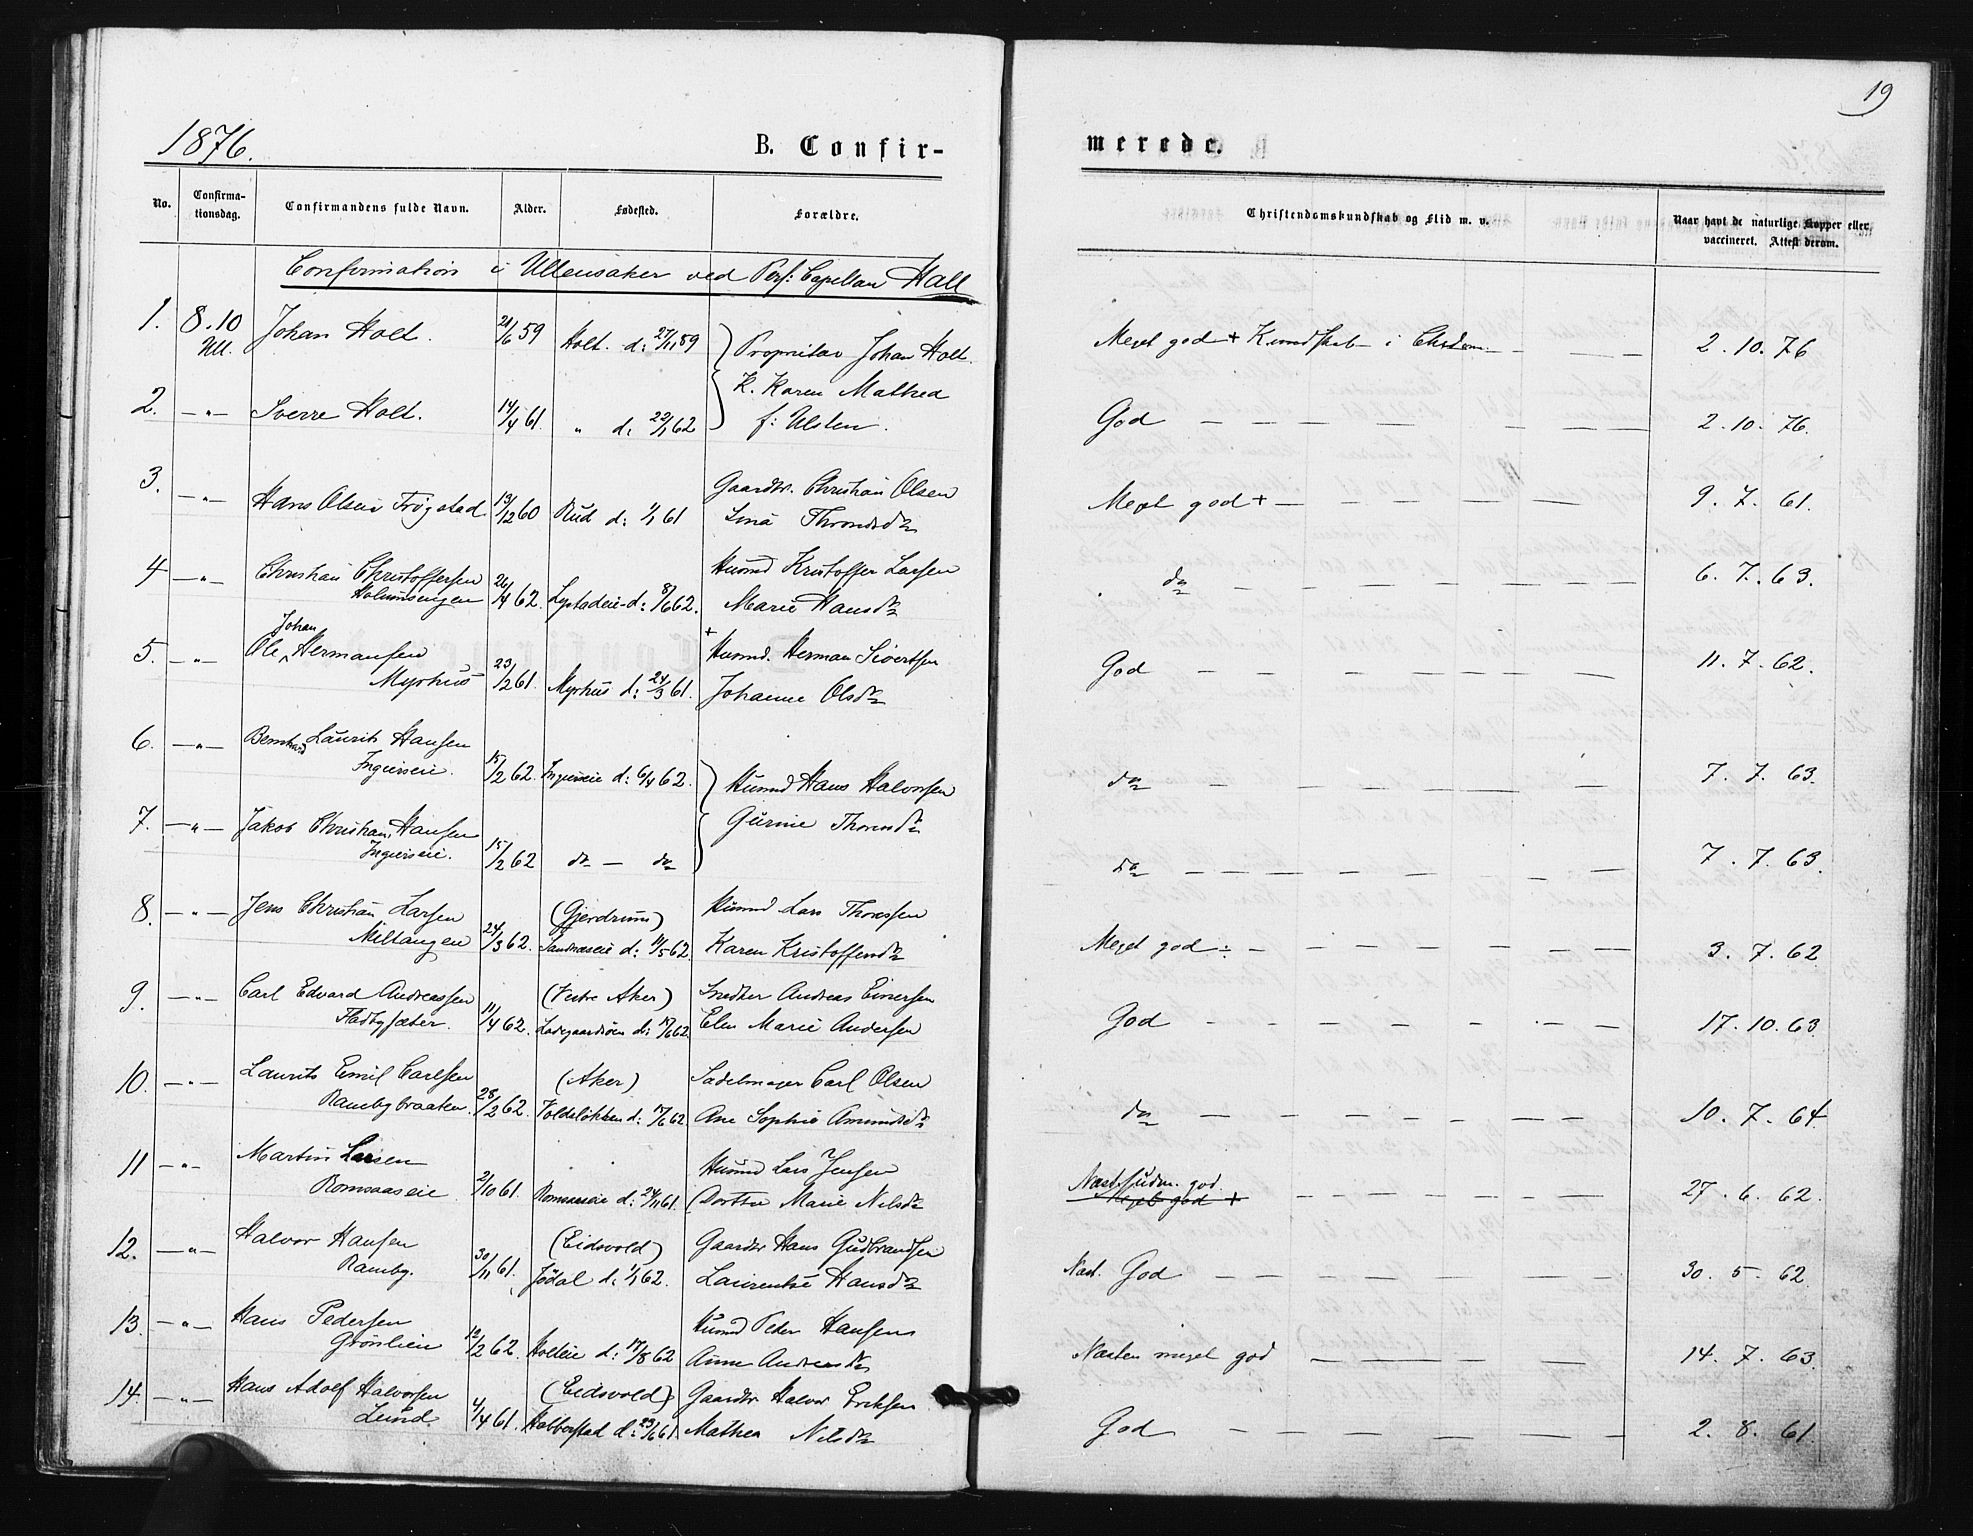 1876.
B. Confir-
No.
Confirma-
tionsdag.
Confirmandens fulde Navn.
Alder.
Fødested.
Forældre.
Confirmation i Ullensaker ved Pers: Capellan Hall
1. 8.10 Johan Holt. 21/6 59 Holt. d: 27/11 59 Proprietær Johan Holt.
Ull. K. Karen Mathea
2. —"— Sverre Holt. 14/4 61. " d: 22/1 62 f: Ulsten.
3. —"— Hans Olsen Frøgstad 13/12 60 Rud d: 1/1 61 Gaardbr. Christian Olsen
Lina Throndsdr
4 —"— Christian Christoffersen Husmd Kristoffer Larsen
Holumsengen 26/4 62. Lystadeie d: 8/6 62. Marie Hansdr
5. —"— Ole Johan Hermansen + Husmd. Herman Sivertsen
Myrhus 23/2 61. Myrhus d: 24/3 61. Johanne Olsdr
6. —"— Bernhard Laurits Hansen
Ingierseie. 15/2 62. Ingierseie d: 6/4 62. Husmd Hans Halvorsen
7. —"— Jakob Christian Hansen Gurine Thorsdr
Ingierseie. 15/2 62 do — do
8. —"— Jens Christian Larsen (Gjerdrum) Husmd Lars Thorsen
Miltangen 24/3 62. Sandnæseie d: 11/5 62. Karen Kristoffersdr
9. —"— Carl Edvard Andreassen (Vestre Aker) Snedker Andreas Einersen
Fladbysæter. 11/4 62. Ladegaardsøen d: 15/6 62 Elen Marie Andersen
10. —"— Laurits Emil Carlsen (Aker) Sadelmager Carl Olsen
Ramebybraaten. 28/2 62. Voldsløkken d: 15/6 62. Ane Sophie Amundsdr
11 —"— Martin Larsen Husmd Lars Jensen
Romsaaseie 2/10 61. Romsaaseie d: 24/11 61. Dorthe Marie Nilsdr
12. —"— Halvor Hansen (Eidsvold) Gaardbr Hans Gudbrandsen
Rameby. 30/11 61. Jødal d: 1/1 62. Laurentse Hansdr
13. —"— Hans Pedersen Husmd Peder Hansen
Grønlien 12/2 62. Holteie d: 17/8 62 Anne Andreasdr
14. —"— Hans Adolf Halvorsen (Eidsvold) Gaardbr Halvor Eriksen
Lund 4/4 61. Habberstad d: 23/6 61. Mathea Nilsdr
19
merede.
Christendomskundskab og Flid m. v.
Naar havt de naturlige Kopper eller
vaccineret. Attest derom.
Meget god + Kundskab i Chrdom — — 2. 10. 76
God — — — — 2. 10. 76.
Meget god + — — — — 9. 7. 61.
do — — — — 6. 7. 63.
God — — — — 11. 7. 62.
do — — — — 7. 7. 63.
do — — — — 7. 7. 63
Meget god ÷ — — — — 3. 7. 62
God — — — — 17. 10. 63
do — — — — 10. 7. 64
Næst.
Meget god + — — — — 27. 6. 62.
Næst. God — — — — 30. 5. 62.
Næsten meget god — — — — 14. 7. 63.
God — — — — 2. 8. 61.